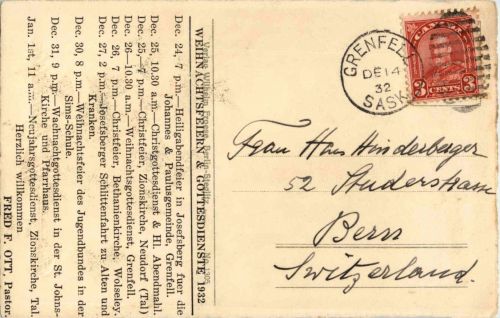 WEIHNACHTSFEIERN & GOTTESDIENSTE 1932
Dec. 24, 7 p.m.—Heiligabendfeier in Josefsberg fuer die
Johannes & Paulusgemeinde, Grenfell.
Dec. 25, 10.30 a.m.—Christgottesdienst & Hl. Abendmahl.
Dec. 25,—7 p.m.—Christfeier, Zionskirche, Neudorf (Tal)
Dec. 26—10.30 a.m.—Weihnachtsgottesdienst, Grenfell.
Dec. 26, 7 p.m.—Christfeier, Bethanienkirche, Wolseley.
Dec. 27, 2 p.m.—Josefsberger Schlittenfahrt zu Alten und
Kranken.
Dec. 30, 8 p.m.—Weihnachtsfeier des Jugendbundes in der
Sims-Schule.
Dec. 31, 9 p.m.—Wachnachtgottesdienst in der St. Johns-
Kirche und Pfarrhaus.
Jan. 1st, 11 a.m.—Neujahrsgottesdienst, Zionskirche, Tal.
Herzlich willkommen
FRED F. OTT, Pastor.
GRENFELL
DE 14
32
SASK
CANADA
3 CENTS 3
Frau Hans Hindenberger
52 Studerstrasse
Bern
Switzerland.